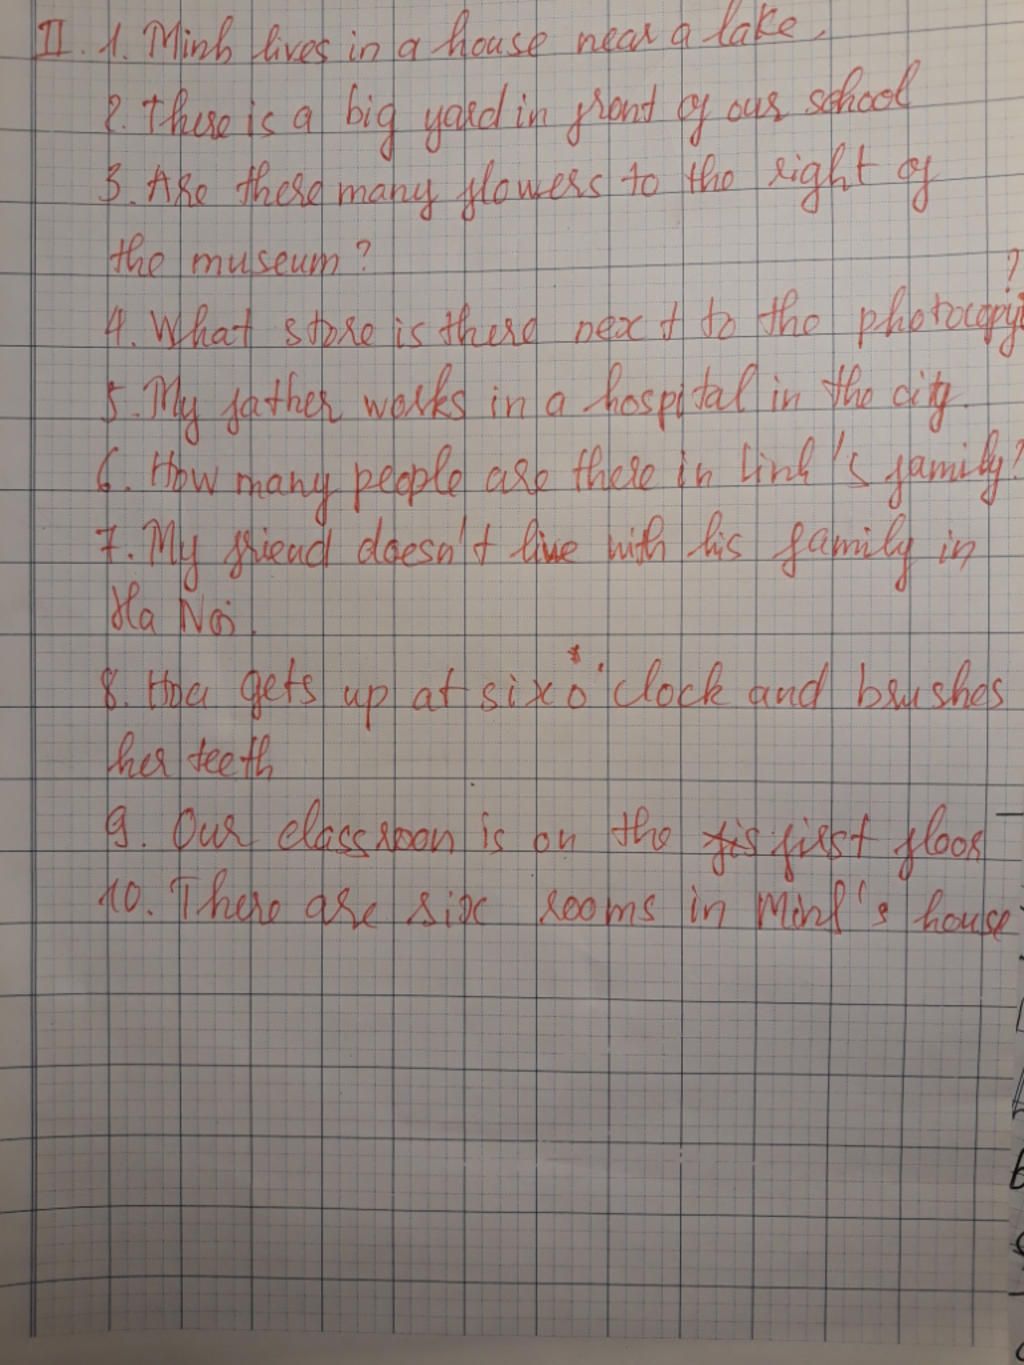 II. 1. Minh lives in a house near a lake.
2. There is a big yard in front of our school
3. Are there many flowers to the right of
the museum?
4. What store is there next to the photocopy?
5. My father works in a hospital in the city.
6. How many people are there in Linh's family?
7. My friend doesn't live with his family in
Ha Noi.
8. Hoa gets up at six o'clock and brushes
her teeth
9. Our classroon is on the first floor
10. There are six rooms in Minh's house